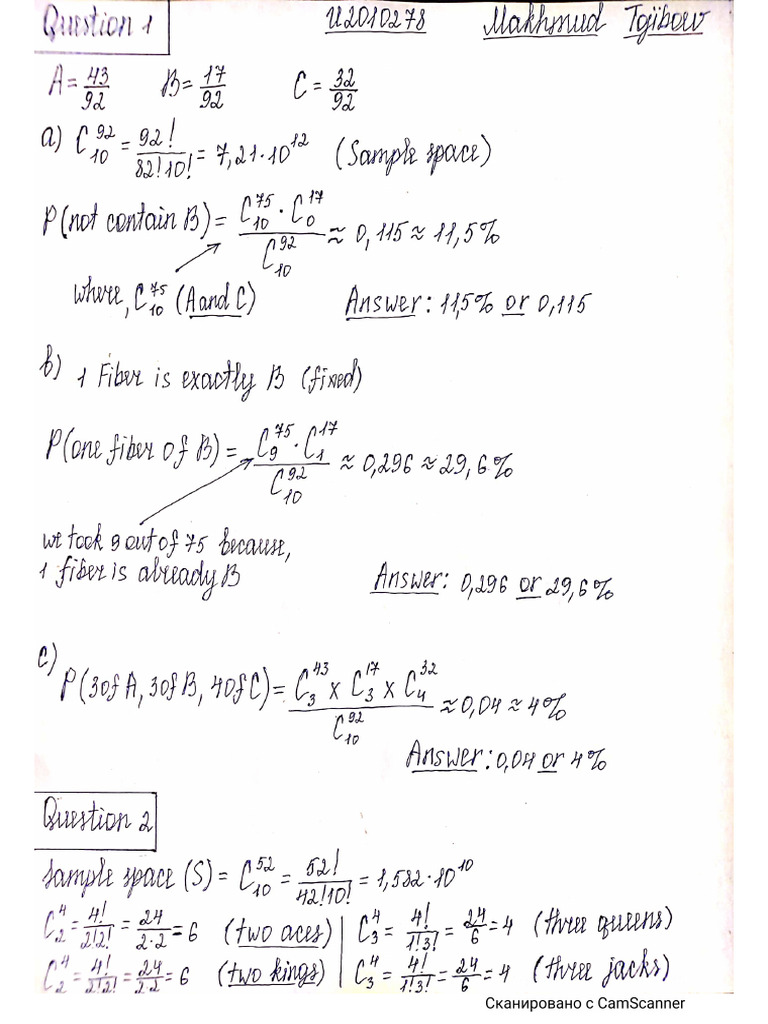 Question 1 U2010278 Makhmud Tojibov
A = 43/92 B = 17/92 C = 32/92
a) C₁₀⁹² = 92!/(82!10!) = 7,21·10¹² (Sample space)
P(not contain B) = (C₁₀⁷⁵ · C₀¹⁷)/C₁₀⁹² ≈ 0,115 ≈ 11,5%
where, C₁₀⁷⁵ (A and C) Answer: 11,5% or 0,115
b) 1 Fiber is exactly B (fixed)
P(one fiber of B) = (C₉⁷⁵ · C₁¹⁷)/C₁₀⁹² ≈ 0,296 ≈ 29,6%
we took 9 out of 75 because,
1 fiber is already B Answer: 0,296 or 29,6%
c)
P(3 of A, 3 of B, 4 of C) = (C₃⁴³ x C₃¹⁷ x C₄³²)/C₁₀⁹² ≈ 0,04 ≈ 4%
Answer: 0,04 or 4%
Question 2
Sample space (S) = C₁₀⁵² = 52!/(42!10!) = 1,582·10¹⁰
C₂⁴ = 4!/(2!2!) = 24/(2·2) = 6 (two aces) | C₃⁴ = 4!/(1!3!) = 24/6 = 4 (three queens)
C₂⁴ = 4!/(2!2!) = 24/(2·2) = 6 (two kings) | C₃⁴ = 4!/(1!3!) = 24/6 = 4 (three jacks)
Сканировано с CamScanner